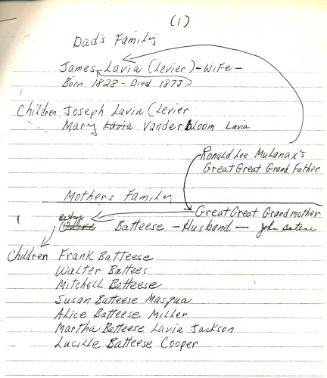 (1)
Dad's Family
James Lavia (Levier) - Wife -
Born 1828 - Died 1875)
Children Joseph Lavia (Levier
Mary Lavia Vander bloom Lavia
Ronald Lee Mulanax's
Great Great Grand Father
Mother's Family
Great Great Grandmother
Batteese - Husband - John
Children Frank Batteese
Walter Battees
Mitchell Batteese
Susan Batteese Masqua
Alice Batteese Miller
Martha Batteese Lavia Jackson
Lucille Batteese Cooper